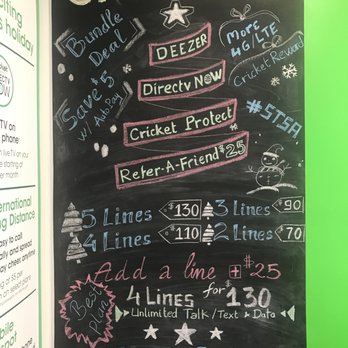 citing
s holiday
Bundle
Deal
DEEZER
More
4G/LTE
DIRECTV
NOW
Save $5
w/ AutoPay
Directv NOW
Cricket Reward
TV on
phone
Cricket Protect
#STSA
Refer-A-Friend $25
ernational
ng Distance
5 Lines $130 3 Lines $90
4 Lines $110 2 Lines $70
Add a line + $25
Best
Plan
4 Lines for $130
Unlimited Talk/Text + Data